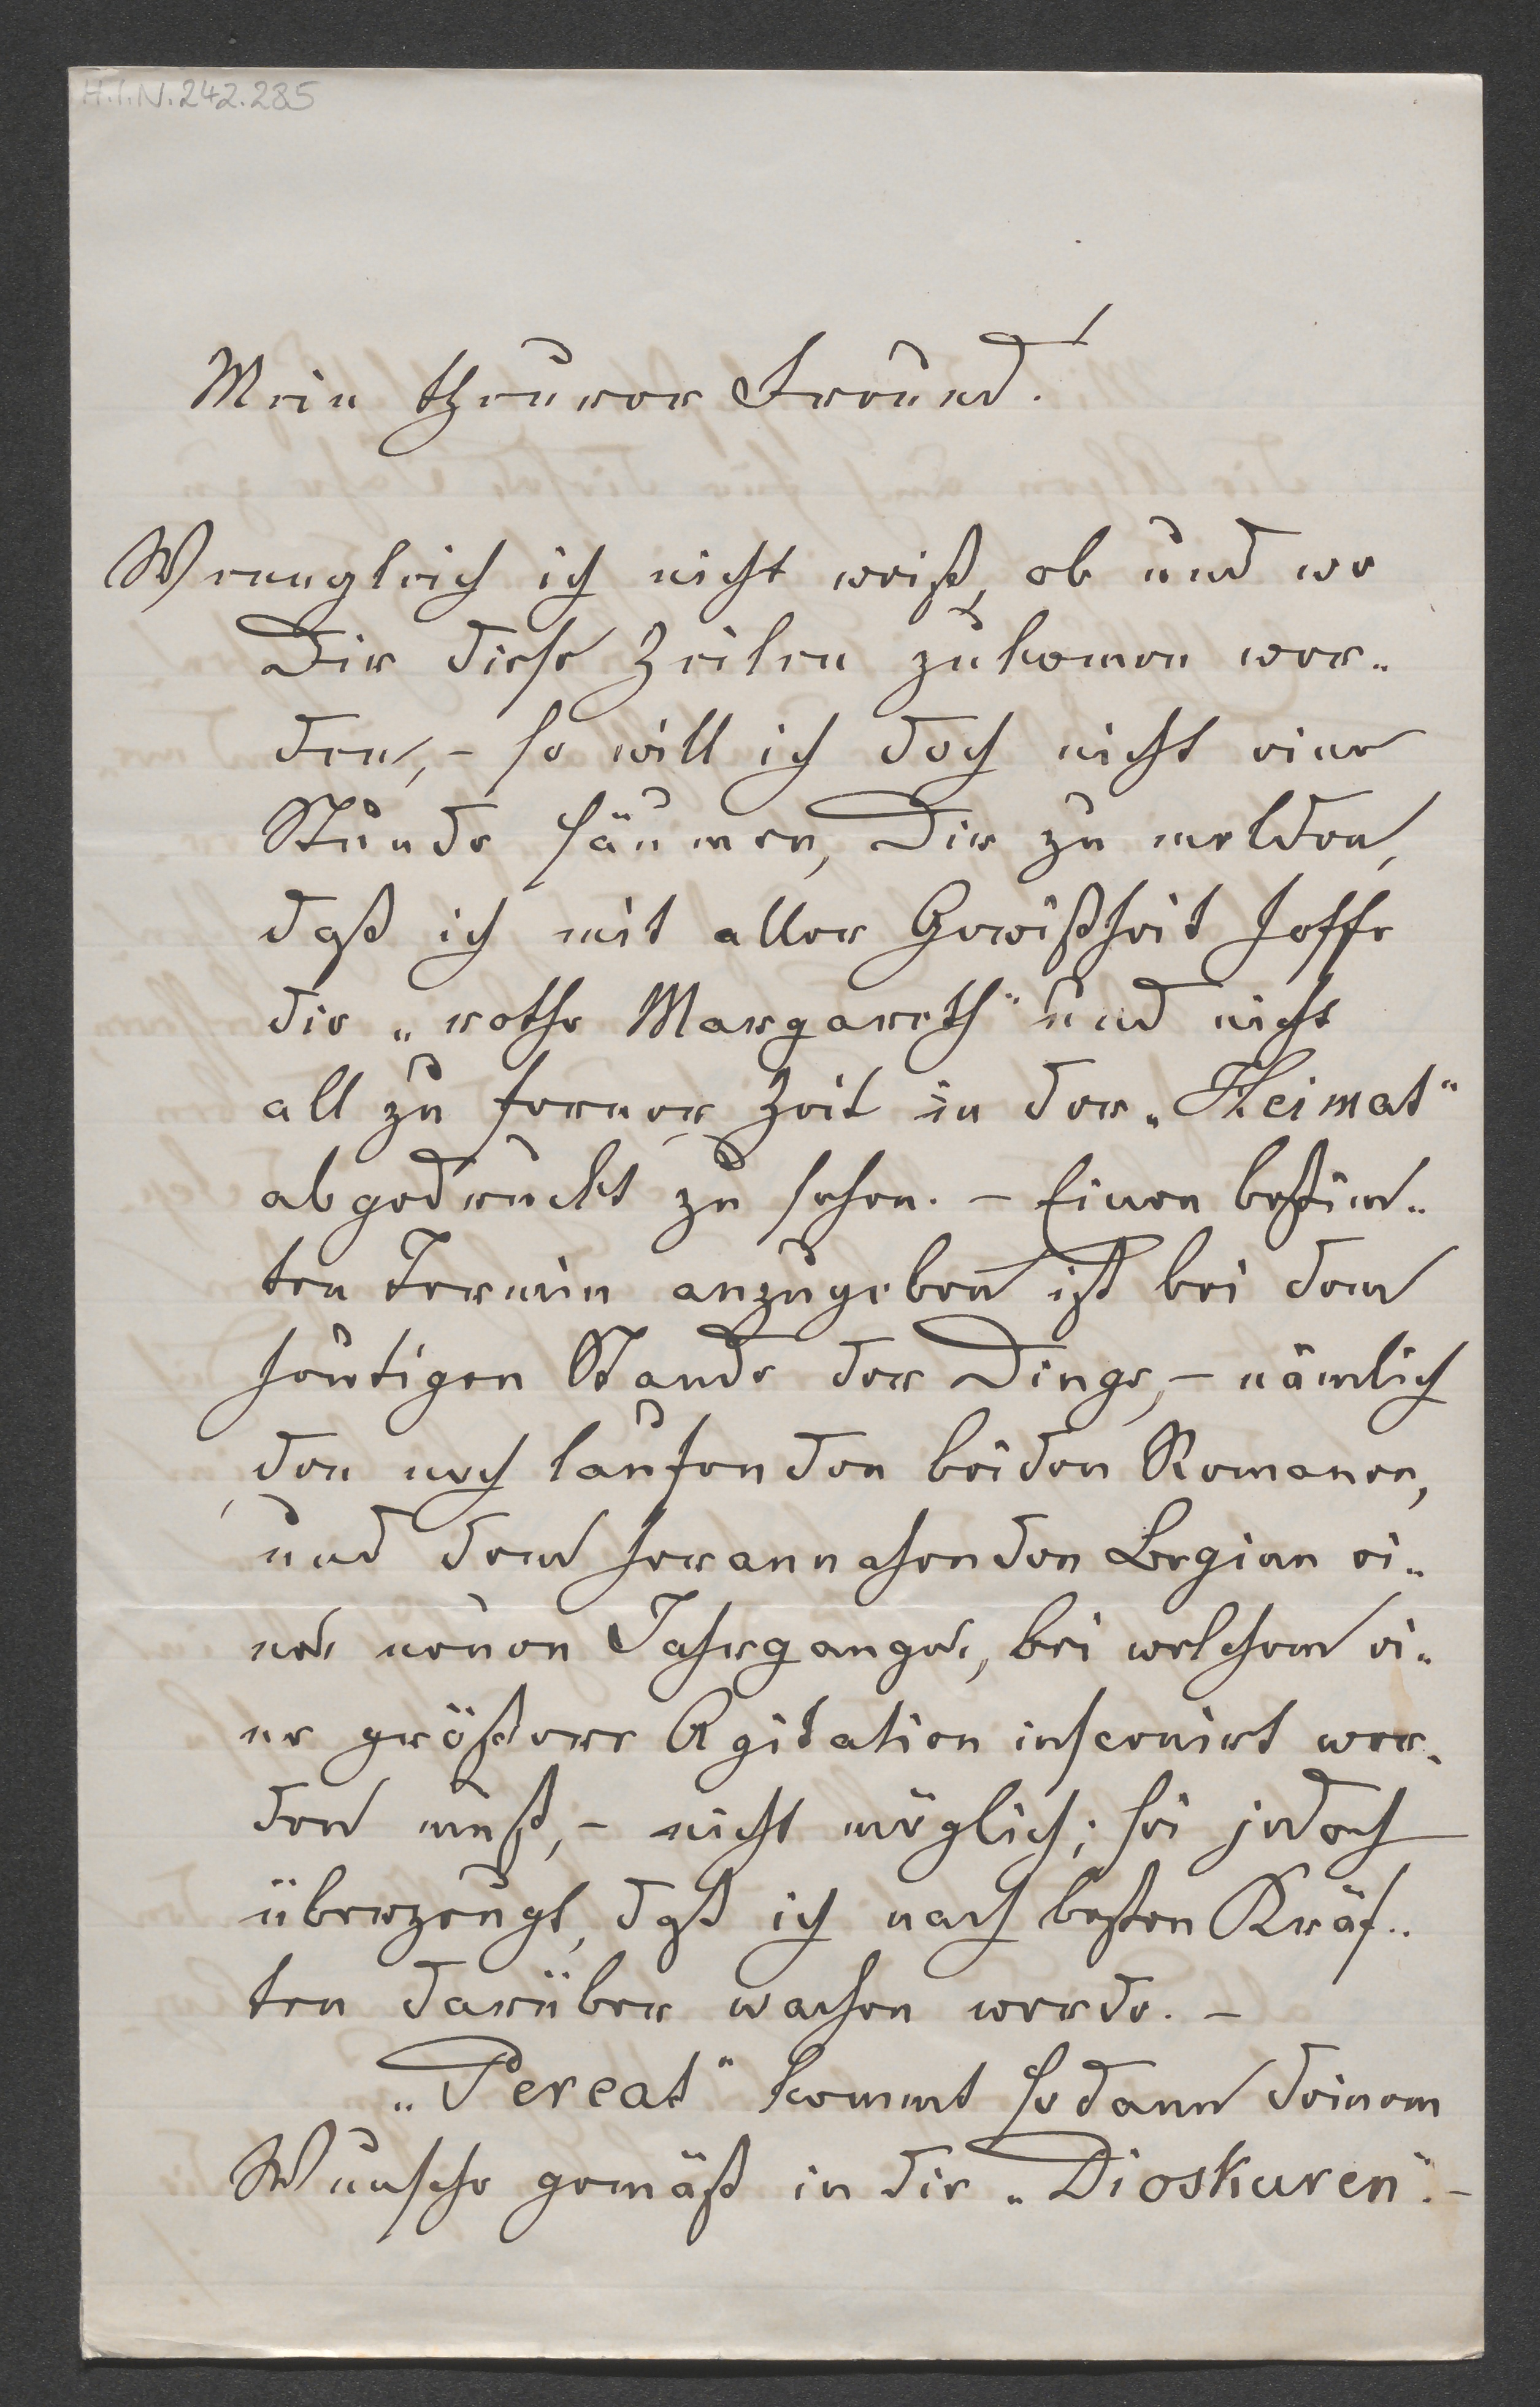 H.I.N. 242.285
Mein theurer Freund.
Wenngleich ich nicht weiß, ob und wo
Dir diese Zeilen zukomen wer-
den, - so will ich doch nicht eine
Stunde säumen, Dir zu melden,
daß ich mit aller Gewißheit hoffe
die „rothe Margareth" und nicht
all zu ferner Zeit in der „Heimat"
abgedruckt zu sehen. - Einen bestim-
ten Termin anzugeben ist bei dem
heutigen Stande der Dinge, - nämlich
den noch laufenden beiden Romanen,
und dem herannahenden Beginn ei-
nes neuen Jahrganges, bei welchem ei-
ne größere Agitation inscenirt wer-
den muß, - nicht möglich; sei jedoch
überzeugt, daß ich nach besten Kräf-
ten darüber wachen werde. -
„Pereat" kommt sodann deinem
Wunsche gemäß in die „Dioskuren". -